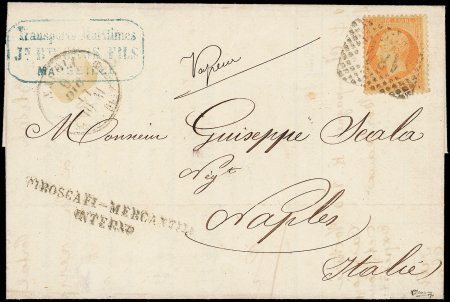 Transports Maritimes
FILS
MARSEILLE
Vapeur
Monsieur Guiseppe Scala
Négt
Naples
Italie
PIROSCAFI-MERCANTILI
INTERNO